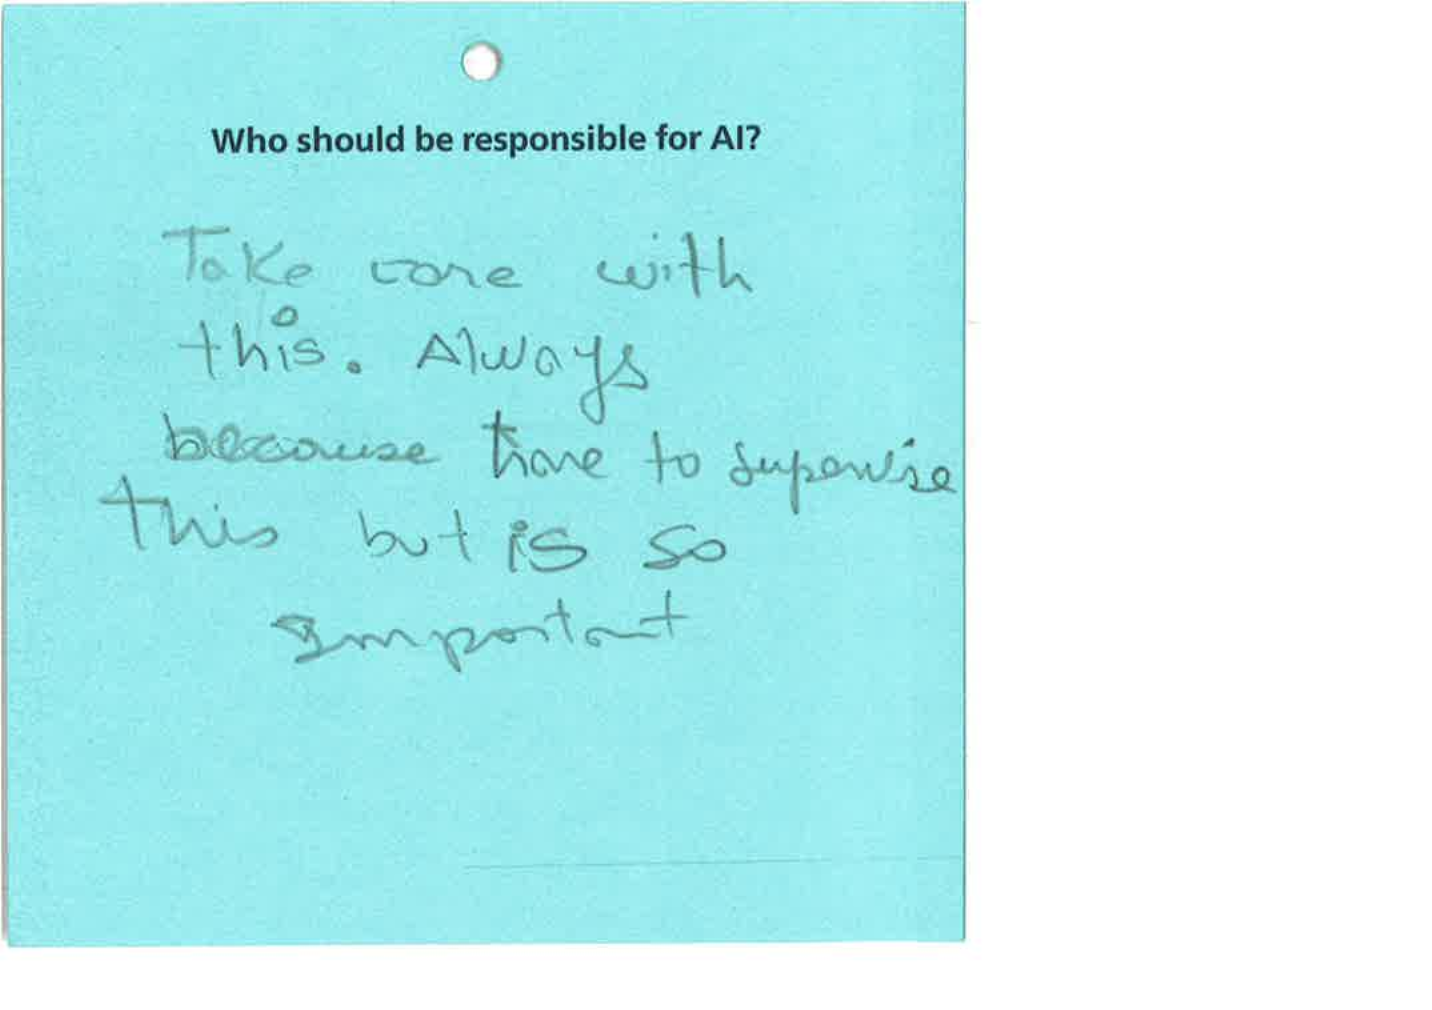 Who should be responsible for AI?
Take care with
this. Always
because have to supervise
this but is so
Important